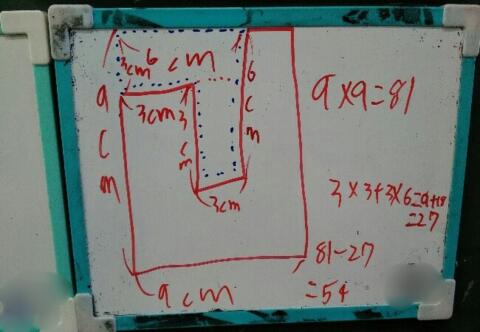 6cm
3cm
9cm
3cm
3cm
6cm
3cm
9cm
9×9=81
3×3+3×6=9+18
=27
81-27
=54